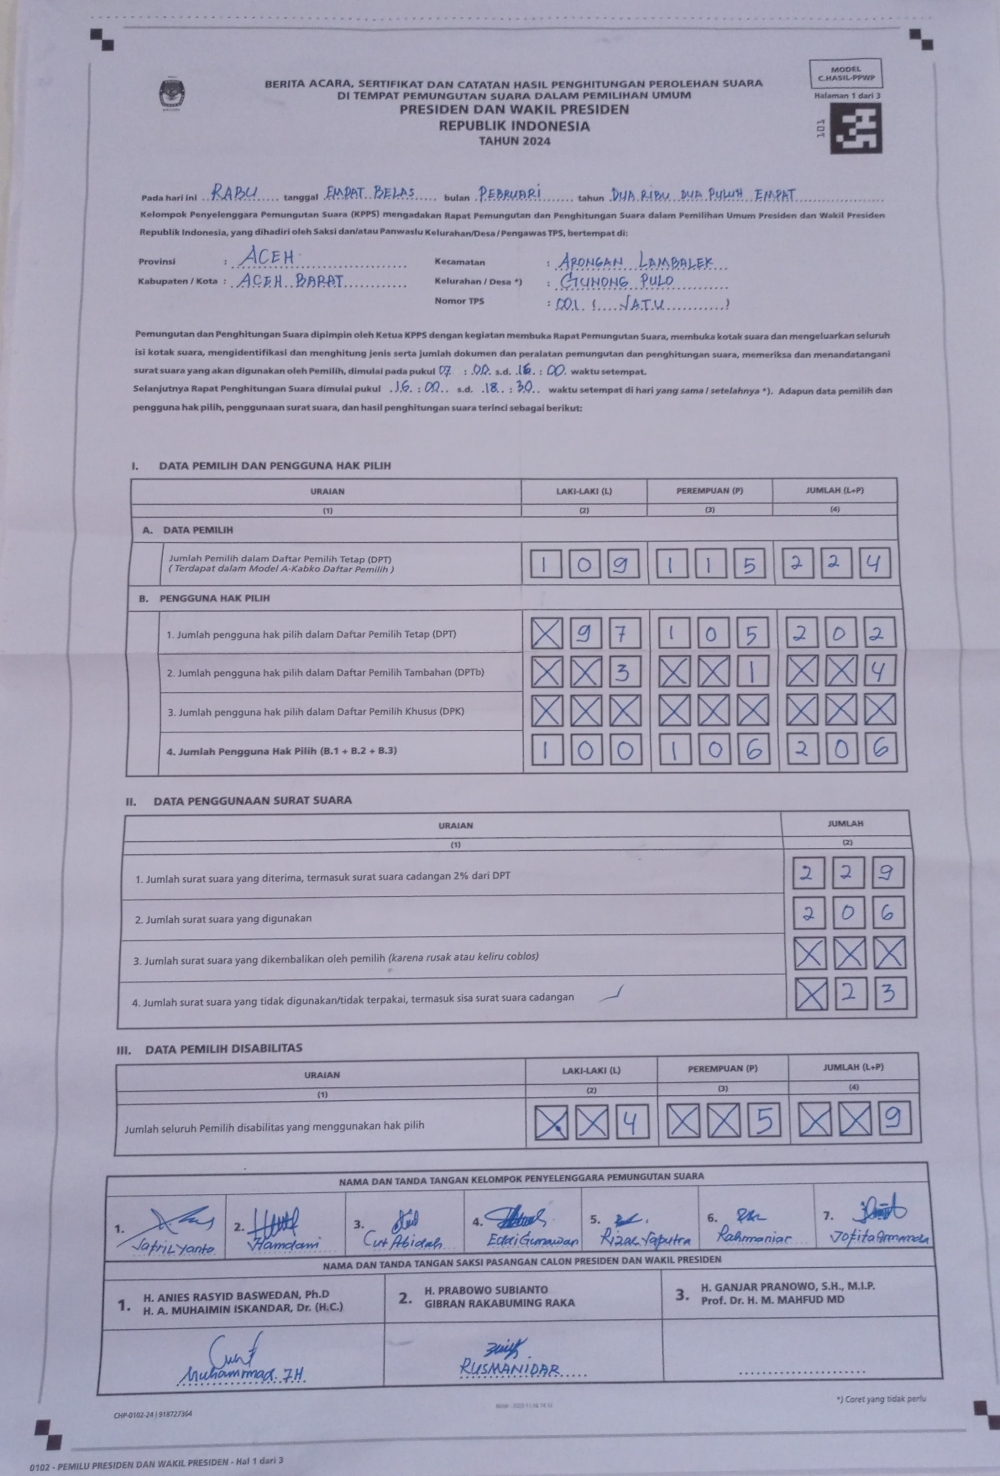 MODEL
C.HASIL-PPWP
Halaman 1 dari 3
101
BERITA ACARA, SERTIFIKAT DAN CATATAN HASIL PENGHITUNGAN PEROLEHAN SUARA
DI TEMPAT PEMUNGUTAN SUARA DALAM PEMILIHAN UMUM
PRESIDEN DAN WAKIL PRESIDEN
REPUBLIK INDONESIA
TAHUN 2024
Pada hari ini RABU tanggal EMPAT BELAS bulan PEBRUARI tahun DUA RIBU DUA PULUH EMPAT
Kelompok Penyelenggara Pemungutan Suara (KPPS) mengadakan Rapat Pemungutan dan Penghitungan Suara dalam Pemilihan Umum Presiden dan Wakil Presiden
Republik Indonesia, yang dihadiri oleh Saksi dan/atau Panwaslu Kelurahan/Desa / Pengawas TPS, bertempat di:
Provinsi : ACEH Kecamatan : ARONGAN LAMBALEK
Kabupaten / Kota : ACEH BARAT Kelurahan / Desa *) : GUNONG PULO
Nomor TPS : 001 ( SATU )
Pemungutan dan Penghitungan Suara dipimpin oleh Ketua KPPS dengan kegiatan membuka Rapat Pemungutan Suara, membuka kotak suara dan mengeluarkan seluruh
isi kotak suara, mengidentifikasi dan menghitung jenis serta jumlah dokumen dan peralatan pemungutan dan penghitungan suara, memeriksa dan menandatangani
surat suara yang akan digunakan oleh Pemilih, dimulai pada pukul 07 : 00 s.d. 16 : 00 waktu setempat.
Selanjutnya Rapat Penghitungan Suara dimulai pukul 16 : 00 s.d. 18 : 30 waktu setempat di hari yang sama / setelahnya *). Adapun data pemilih dan
pengguna hak pilih, penggunaan surat suara, dan hasil penghitungan suara terinci sebagai berikut:
I. DATA PEMILIH DAN PENGGUNA HAK PILIH
URAIAN LAKI-LAKI (L) PEREMPUAN (P) JUMLAH (L+P)
(1) (2) (3) (4)
A. DATA PEMILIH
Jumlah Pemilih dalam Daftar Pemilih Tetap (DPT) 109 115 224
( Terdapat dalam Model A-Kabko Daftar Pemilih )
B. PENGGUNA HAK PILIH
1. Jumlah pengguna hak pilih dalam Daftar Pemilih Tetap (DPT) X97 105 202
2. Jumlah pengguna hak pilih dalam Daftar Pemilih Tambahan (DPTb) XX3 XX1 XX4
3. Jumlah pengguna hak pilih dalam Daftar Pemilih Khusus (DPK) XXX XXX XXX
4. Jumlah Pengguna Hak Pilih (B.1 + B.2 + B.3) 100 106 206
II. DATA PENGGUNAAN SURAT SUARA
URAIAN JUMLAH
(1) (2)
1. Jumlah surat suara yang diterima, termasuk surat suara cadangan 2% dari DPT 229
2. Jumlah surat suara yang digunakan 206
3. Jumlah surat suara yang dikembalikan oleh pemilih (karena rusak atau keliru coblos) XXX
4. Jumlah surat suara yang tidak digunakan/tidak terpakai, termasuk sisa surat suara cadangan X23
III. DATA PEMILIH DISABILITAS
URAIAN LAKI-LAKI (L) PEREMPUAN (P) JUMLAH (L+P)
(1) (2) (3) (4)
Jumlah seluruh Pemilih disabilitas yang menggunakan hak pilih XX4 XX5 XX9
NAMA DAN TANDA TANGAN KELOMPOK PENYELENGGARA PEMUNGUTAN SUARA
1. 2. 3. 4. 5. 6. 7.
Jafril Yanto Hamdani Cut Abidah Edi Gunawan Rahmaniar
NAMA DAN TANDA TANGAN SAKSI PASANGAN CALON PRESIDEN DAN WAKIL PRESIDEN
1. H. ANIES RASYID BASWEDAN, Ph.D
H. A. MUHAIMIN ISKANDAR, Dr. (H.C.)
2. H. PRABOWO SUBIANTO
GIBRAN RAKABUMING RAKA
3. H. GANJAR PRANOWO, S.H., M.I.P.
Prof. Dr. H. M. MAHFUD MD
Muhammad. ZH RUSMANIDAR
*) Coret yang tidak perlu
CHP-0102-24 | 918727364
0102 - PEMILU PRESIDEN DAN WAKIL PRESIDEN - Hal 1 dari 3